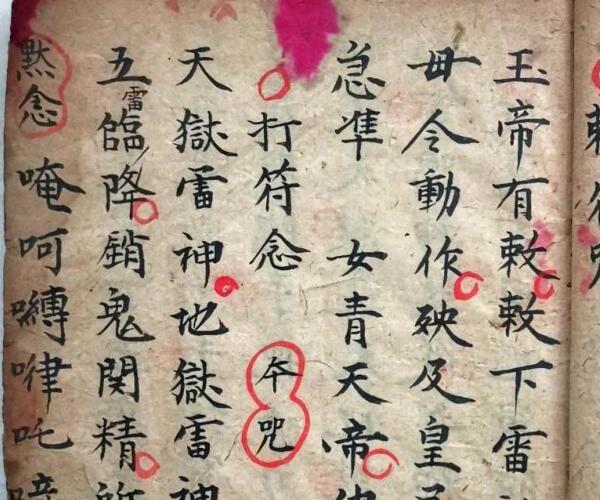 勅符咒
玉帝有敕敕下雷
毋令動作殃及皇
急準 女青天帝
打符念 本咒
天獄雷神地獄雷神
五雷臨降銷鬼関精
默念 唵呵嚩㗚吒